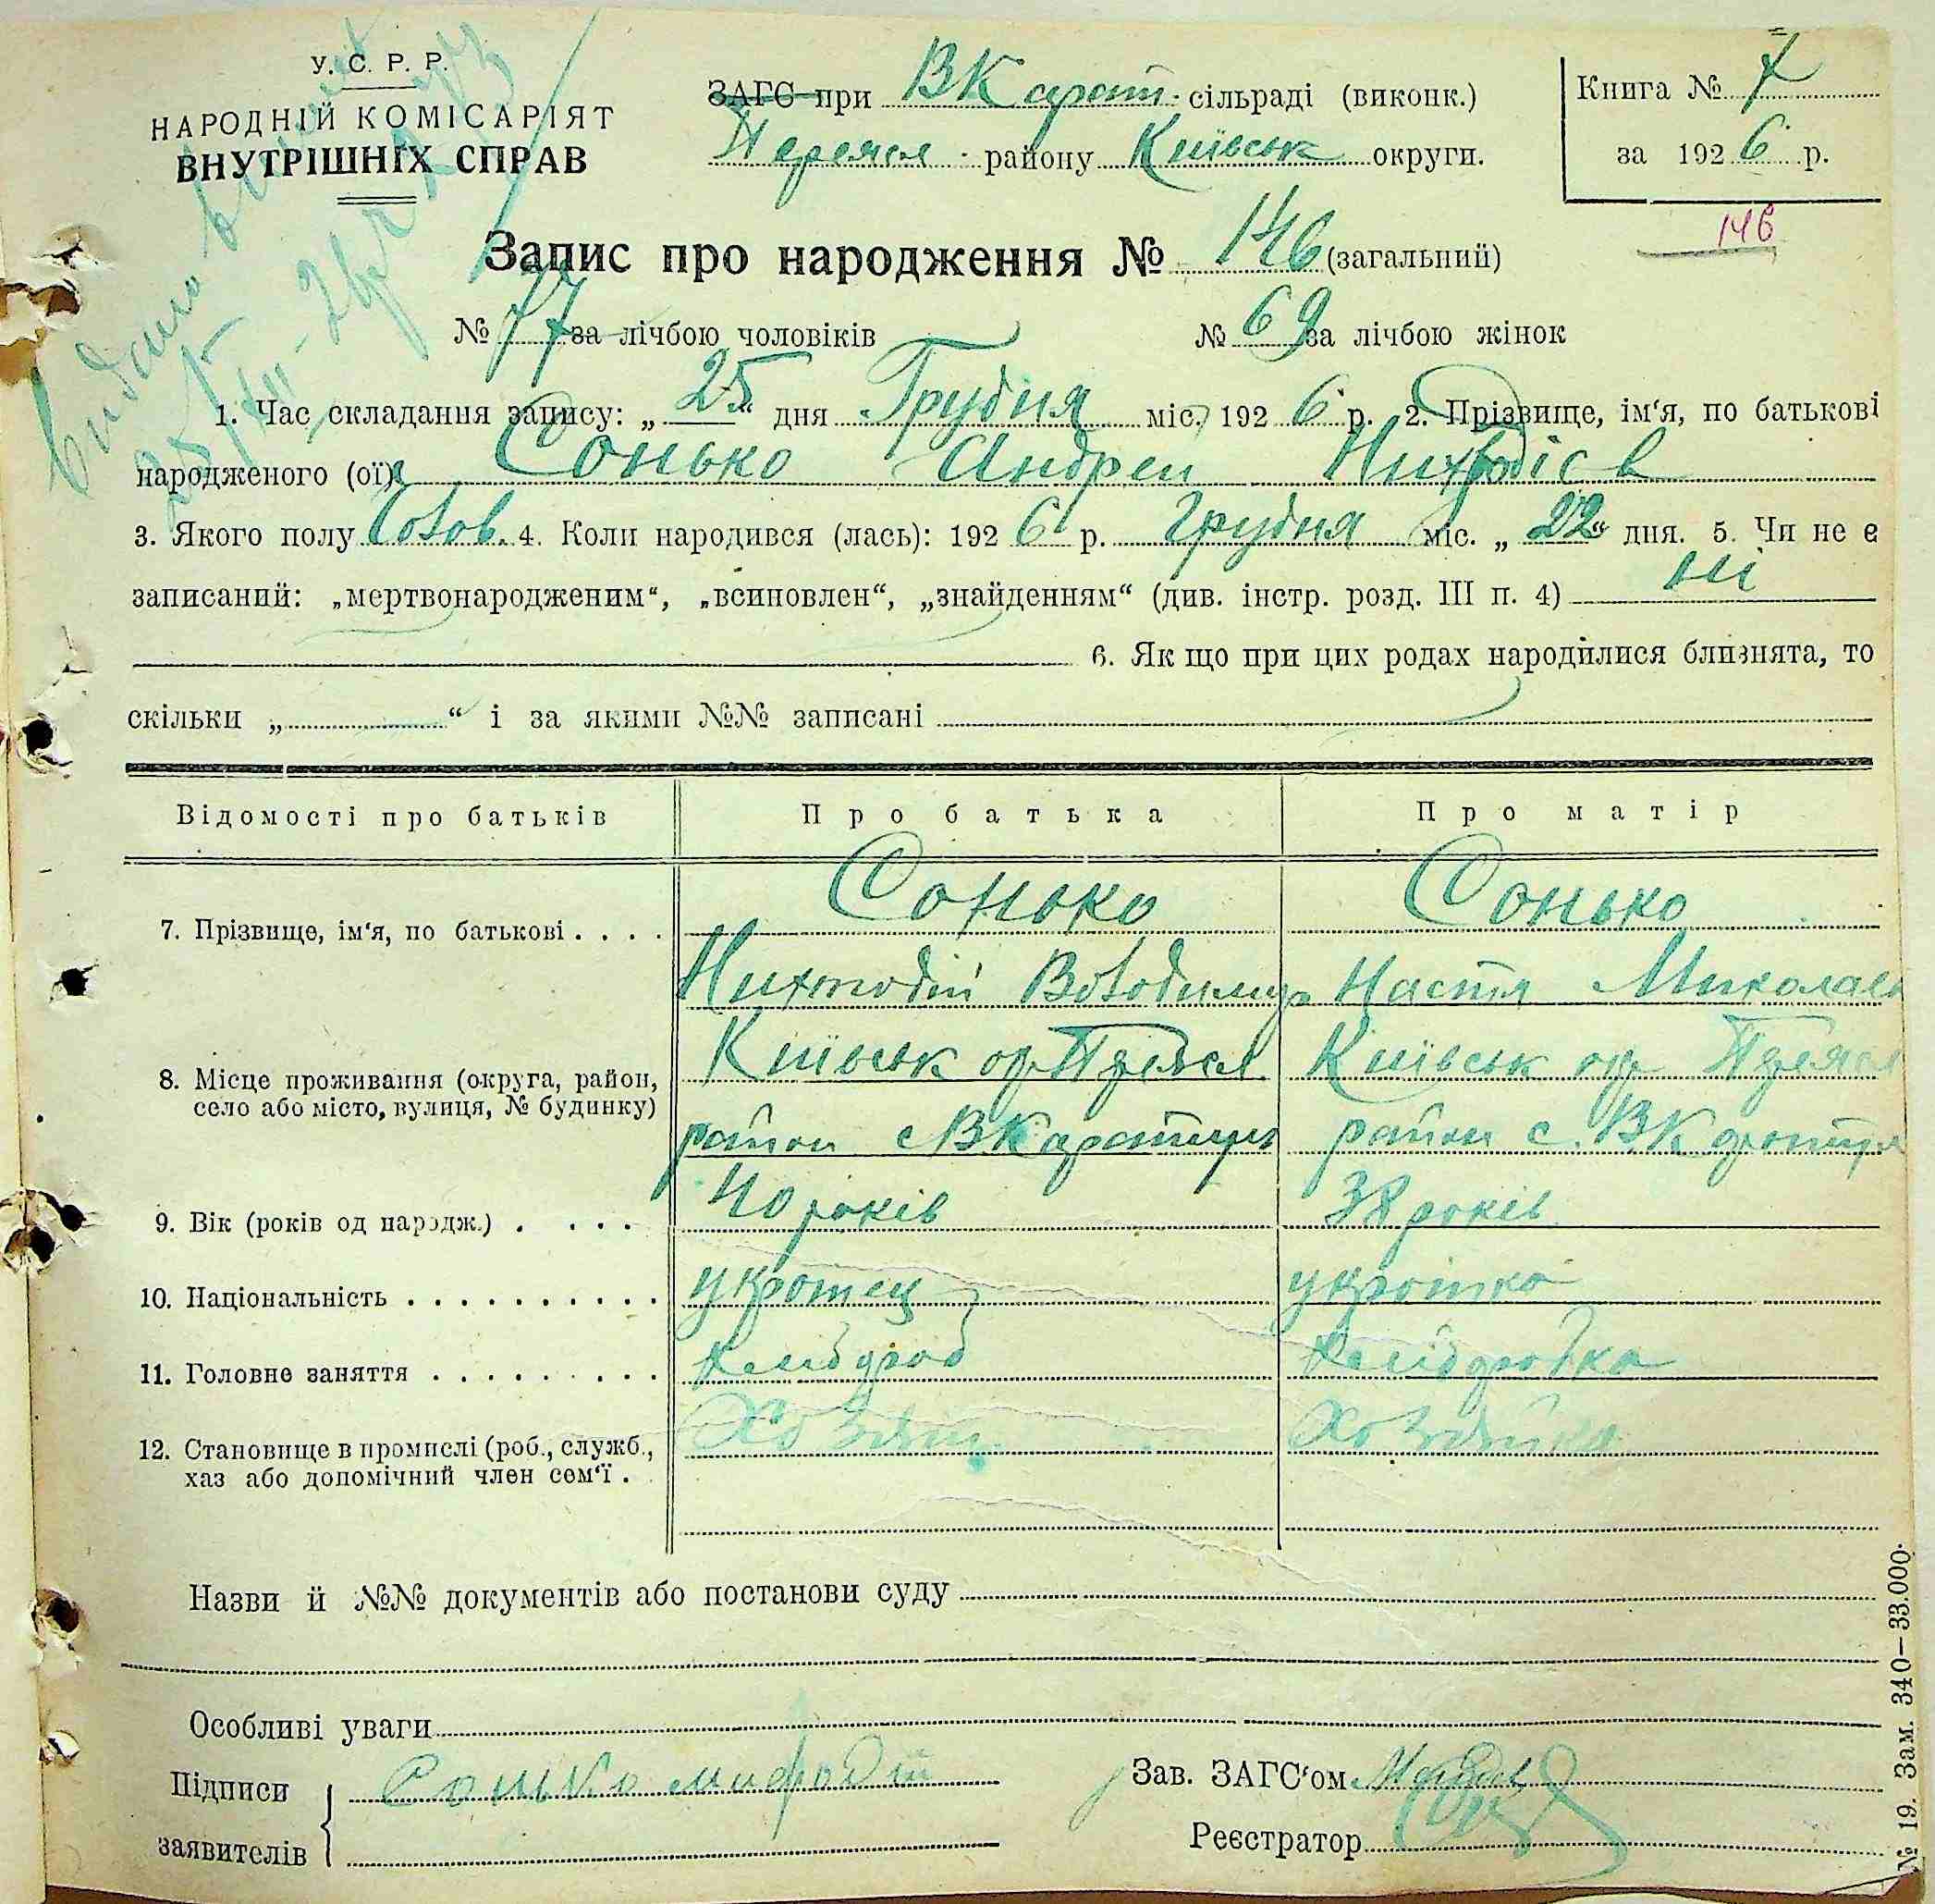 У. С. Р. Р.
НАРОДНІЙ КОМІСАРІЯТ
ВНУТРІШНІХ СПРАВ
ЗАГС при ВКарат. сільраді (виконк.)
Переясл. району Київськ округи.
Книга № 7
за 1926 р.
146
Запис про народження № 146 (загальний)
№ 77 за лічбою чоловіків № 69 за лічбою жінок
Видано
1. Час складання запису: „25“ дня Грудня міс. 1926 р. 2. Прізвище, ім'я, по батькові
народженого (ої) Сонько Андрей
3. Якого полу Чолов. 4. Коли народився (лась): 1926 р. Грудня міс. „22“ дня. 5. Чи не є
записаний: „мертвонародженим“, „всиновлен“, „знайденням“ (див. інстр. розд. III п. 4) ні
6. Як що при цих родах народилися близнята, то
скільки „ “ і за якими №№ записані
Відомості про батьків Про батька Про матір
7. Прізвище, ім'я, по батькові . . . . Сонько Сонько
Володимир Настя Миколаев
8. Місце проживання (округа, район, Київськ окр Переясл Київськ окр Переясл
село або місто, вулиця, № будинку) район с ВКаратуль район с. ВКаратуль
9. Вік (років од народж.) . . . . 40 років 38 років
10. Національність . . . . . . . . . . україтец україтка
11. Головне заняття . . . . . . . . . хлібороб хліборобка
12. Становище в промислі (роб., служб., Хозяїн Хозяйка
хаз або допомічний член сем'ї .
Назви й №№ документів або постанови суду
Особливі уваги
Підписи Сонько мифодій Зав. ЗАГС'ом
заявителів Реєстратор
№ 19. Зам. 340—33.000.